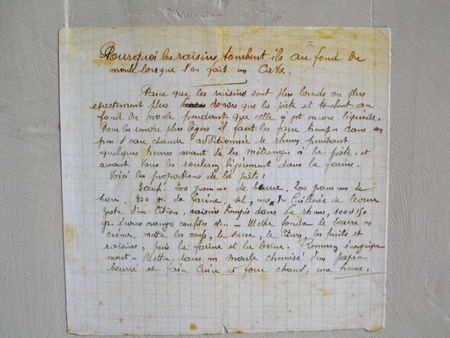 Pourquoi les raisins tombent-ils au fond du
moule lorsque l'on fait un Cake.
Parce que les raisins sont plus lourds ou plus
exactement plus denses que la pâte et tombent au
fond du moule pendant que celle-ci est encore liquide.
Pour les rendre plus légers il faut les faire tremper dans un
peu d'eau chaude additionnée de rhum pendant
quelques heures avant de les mélanger à la pâte et
avant tout les rouler légèrement dans la farine.
Voici les proportions de la pâte :
200 grammes de beurre, 200 grammes de
sucre, de farine, sel, Cuillerée de levure
zeste d'un citron, raisins trempés dans le rhum, 100 à 150
gr d'écorces oranges confites - Mettre fondre le beurre en
crème, mettre les oeufs, le sucre, le citron, les fruits et
raisins, puis la farine et la levure.
Mettre dans un moule chemisé d'un papier
beurré et faire Cuire à four chaud, une heure.